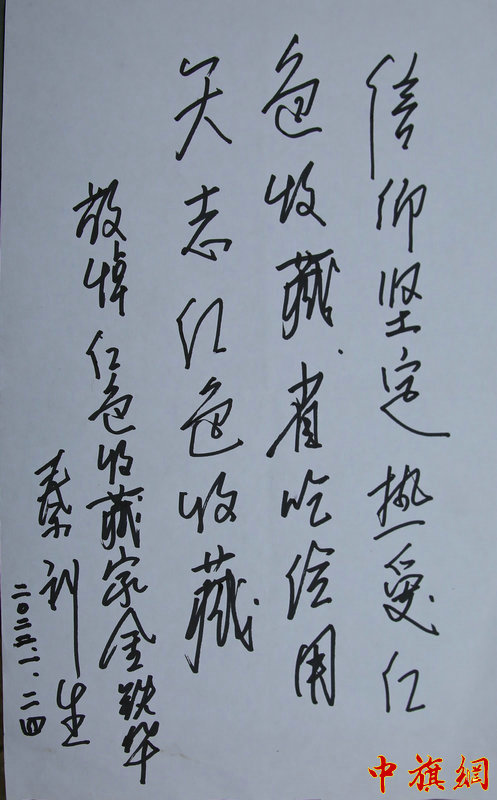 信仰坚定热爱红
色收藏省吃俭用
矢志红色收藏
敬悼红色收藏家金铁华
秦 生
二〇二二.1.二四
中旗網